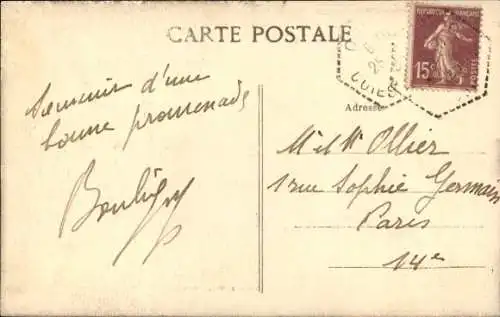 CARTE POSTALE
REPUBLIQUE FRANÇAISE
15c
POSTES
Souvenir d'une
bonne promenade
Adresse
Mr et Me Ollier
1 rue Sophie Germain
Paris
14e